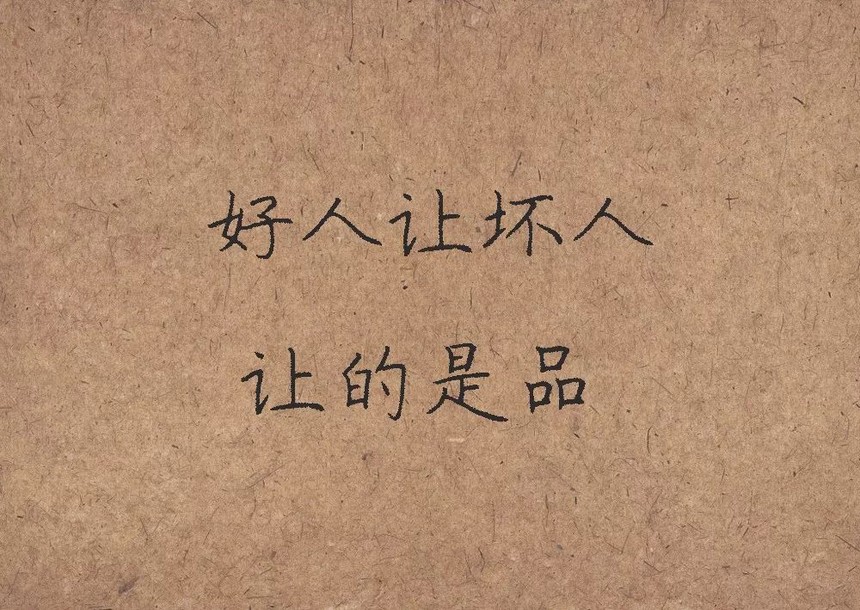 好人让坏人
让的是品